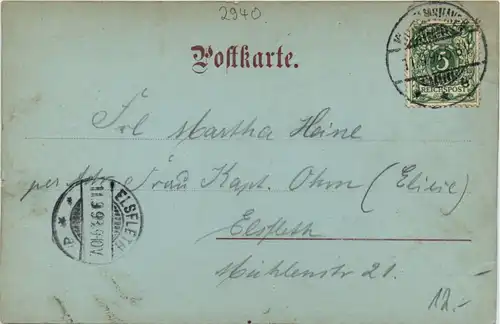 2940
Postkarte.
5
REICHSPOST
Frl Martha Heine
per Adr. Frau Kapt. Ohm (Elise)
Elsfleth
Mühlenstr 21.
ELSFLETH
12.-